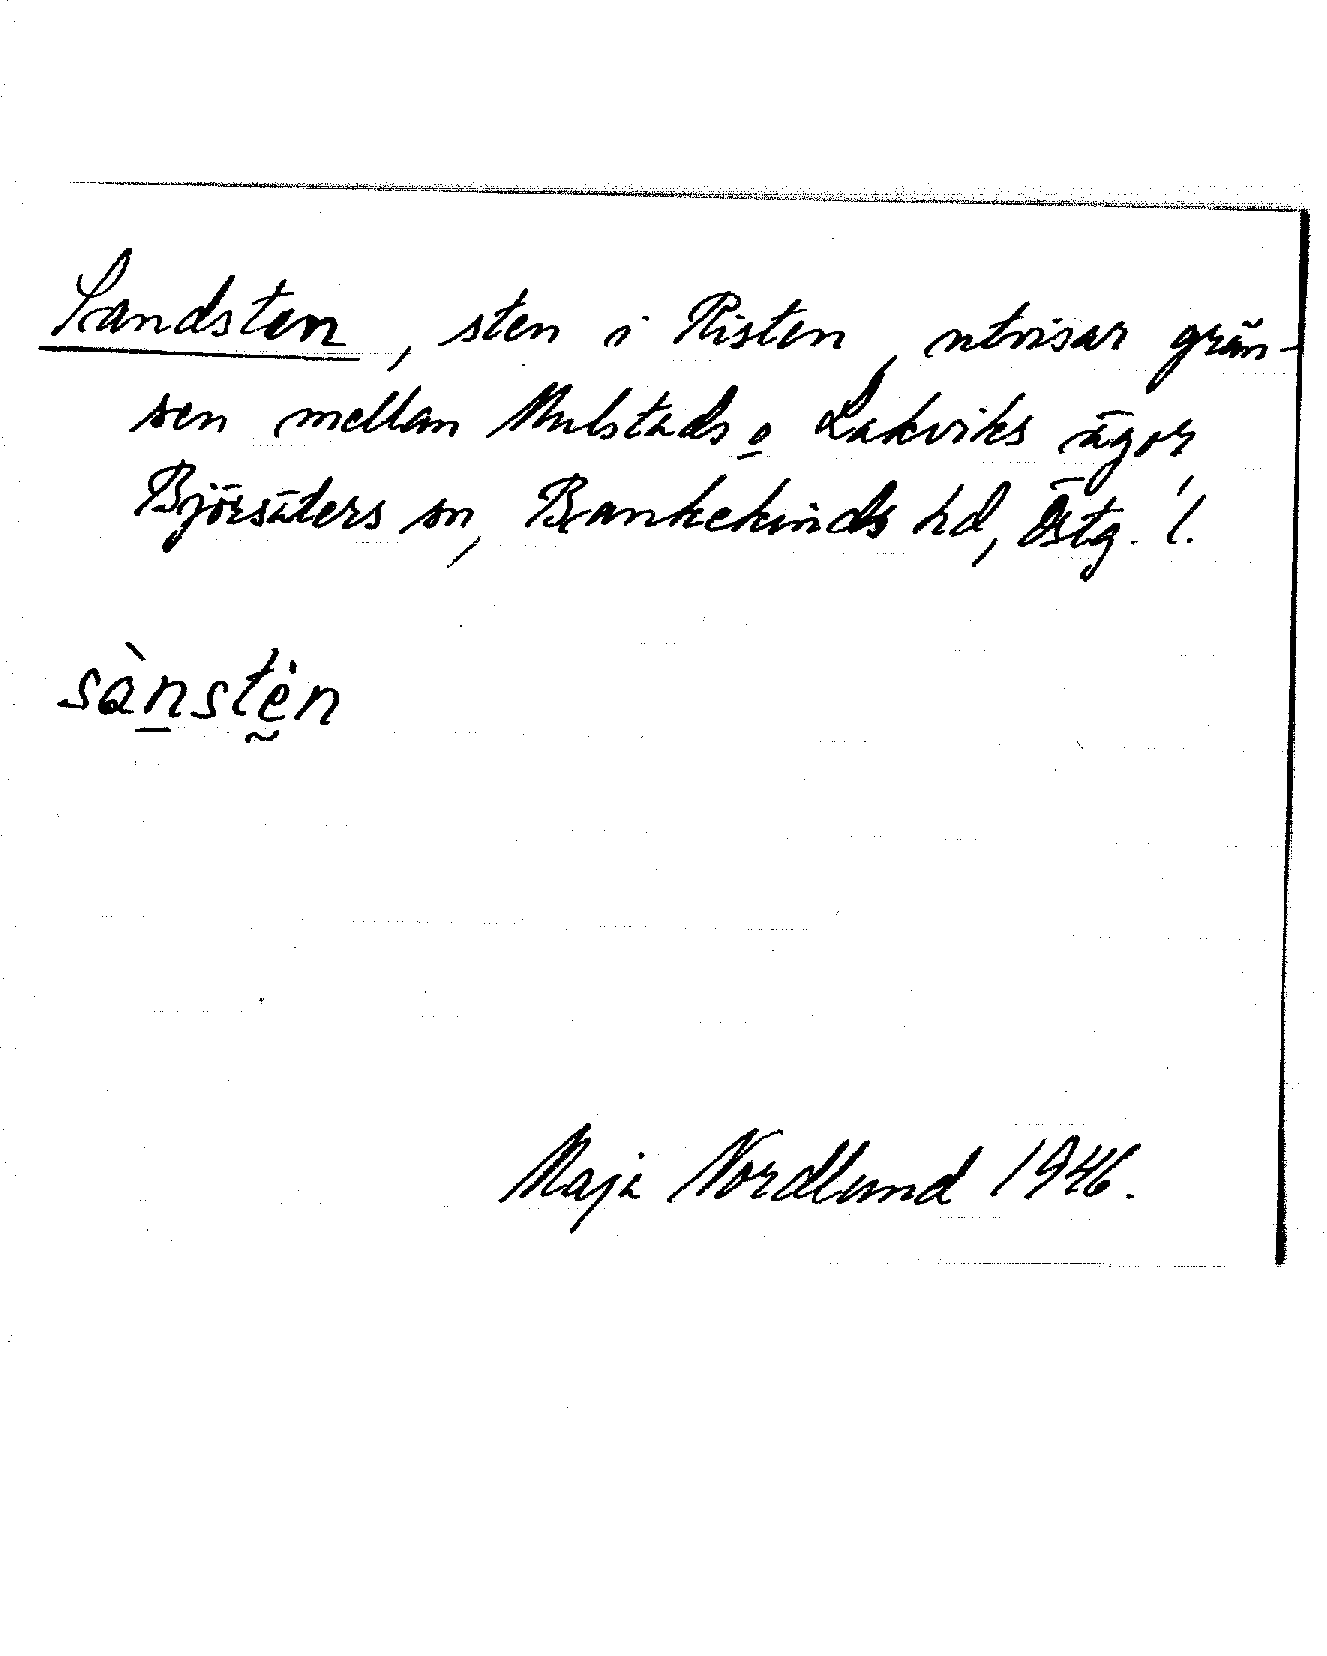 Sandsten, sten i Risten, utvisar grän-
sen mellan Mulstads o Lakviks ägor,
Björsäters sn, Bankekinds hd, Östg. l.
sànstèn
Maja Nordlund 1946.